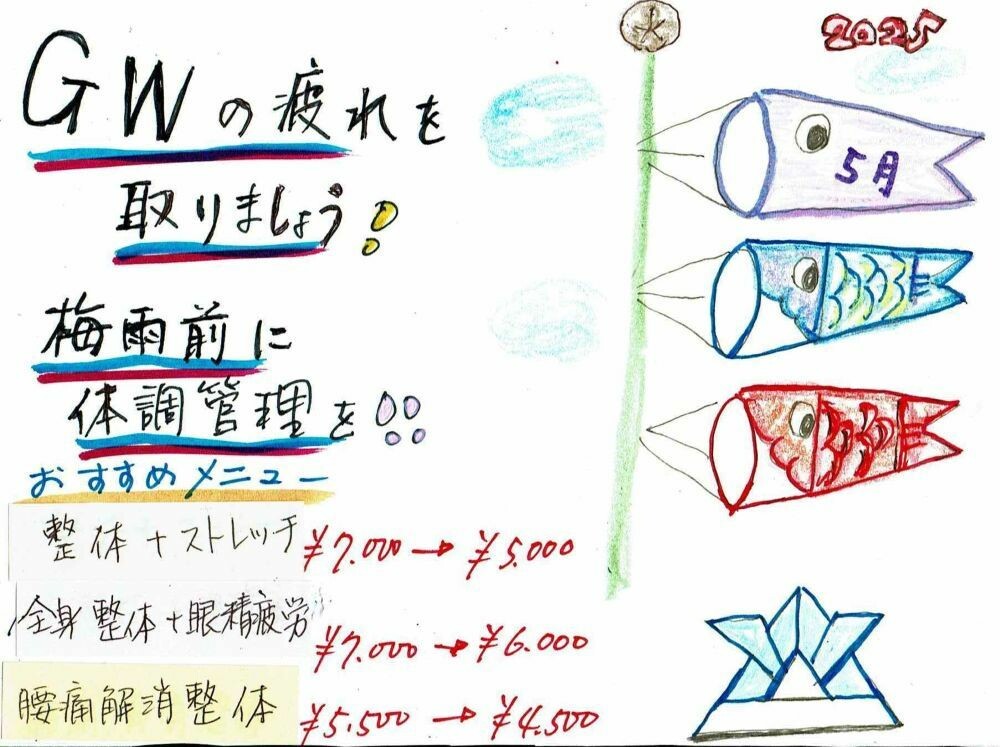 GWの疲れを
取りましょう!
梅雨前に
体調管理を!!
おすすめメニュー
整体+ストレッチ ¥7.000→¥5.000
全身整体+眼精疲労 ¥7.000→¥6.000
腰痛解消整体 ¥5.500→¥4.500
2025
5月